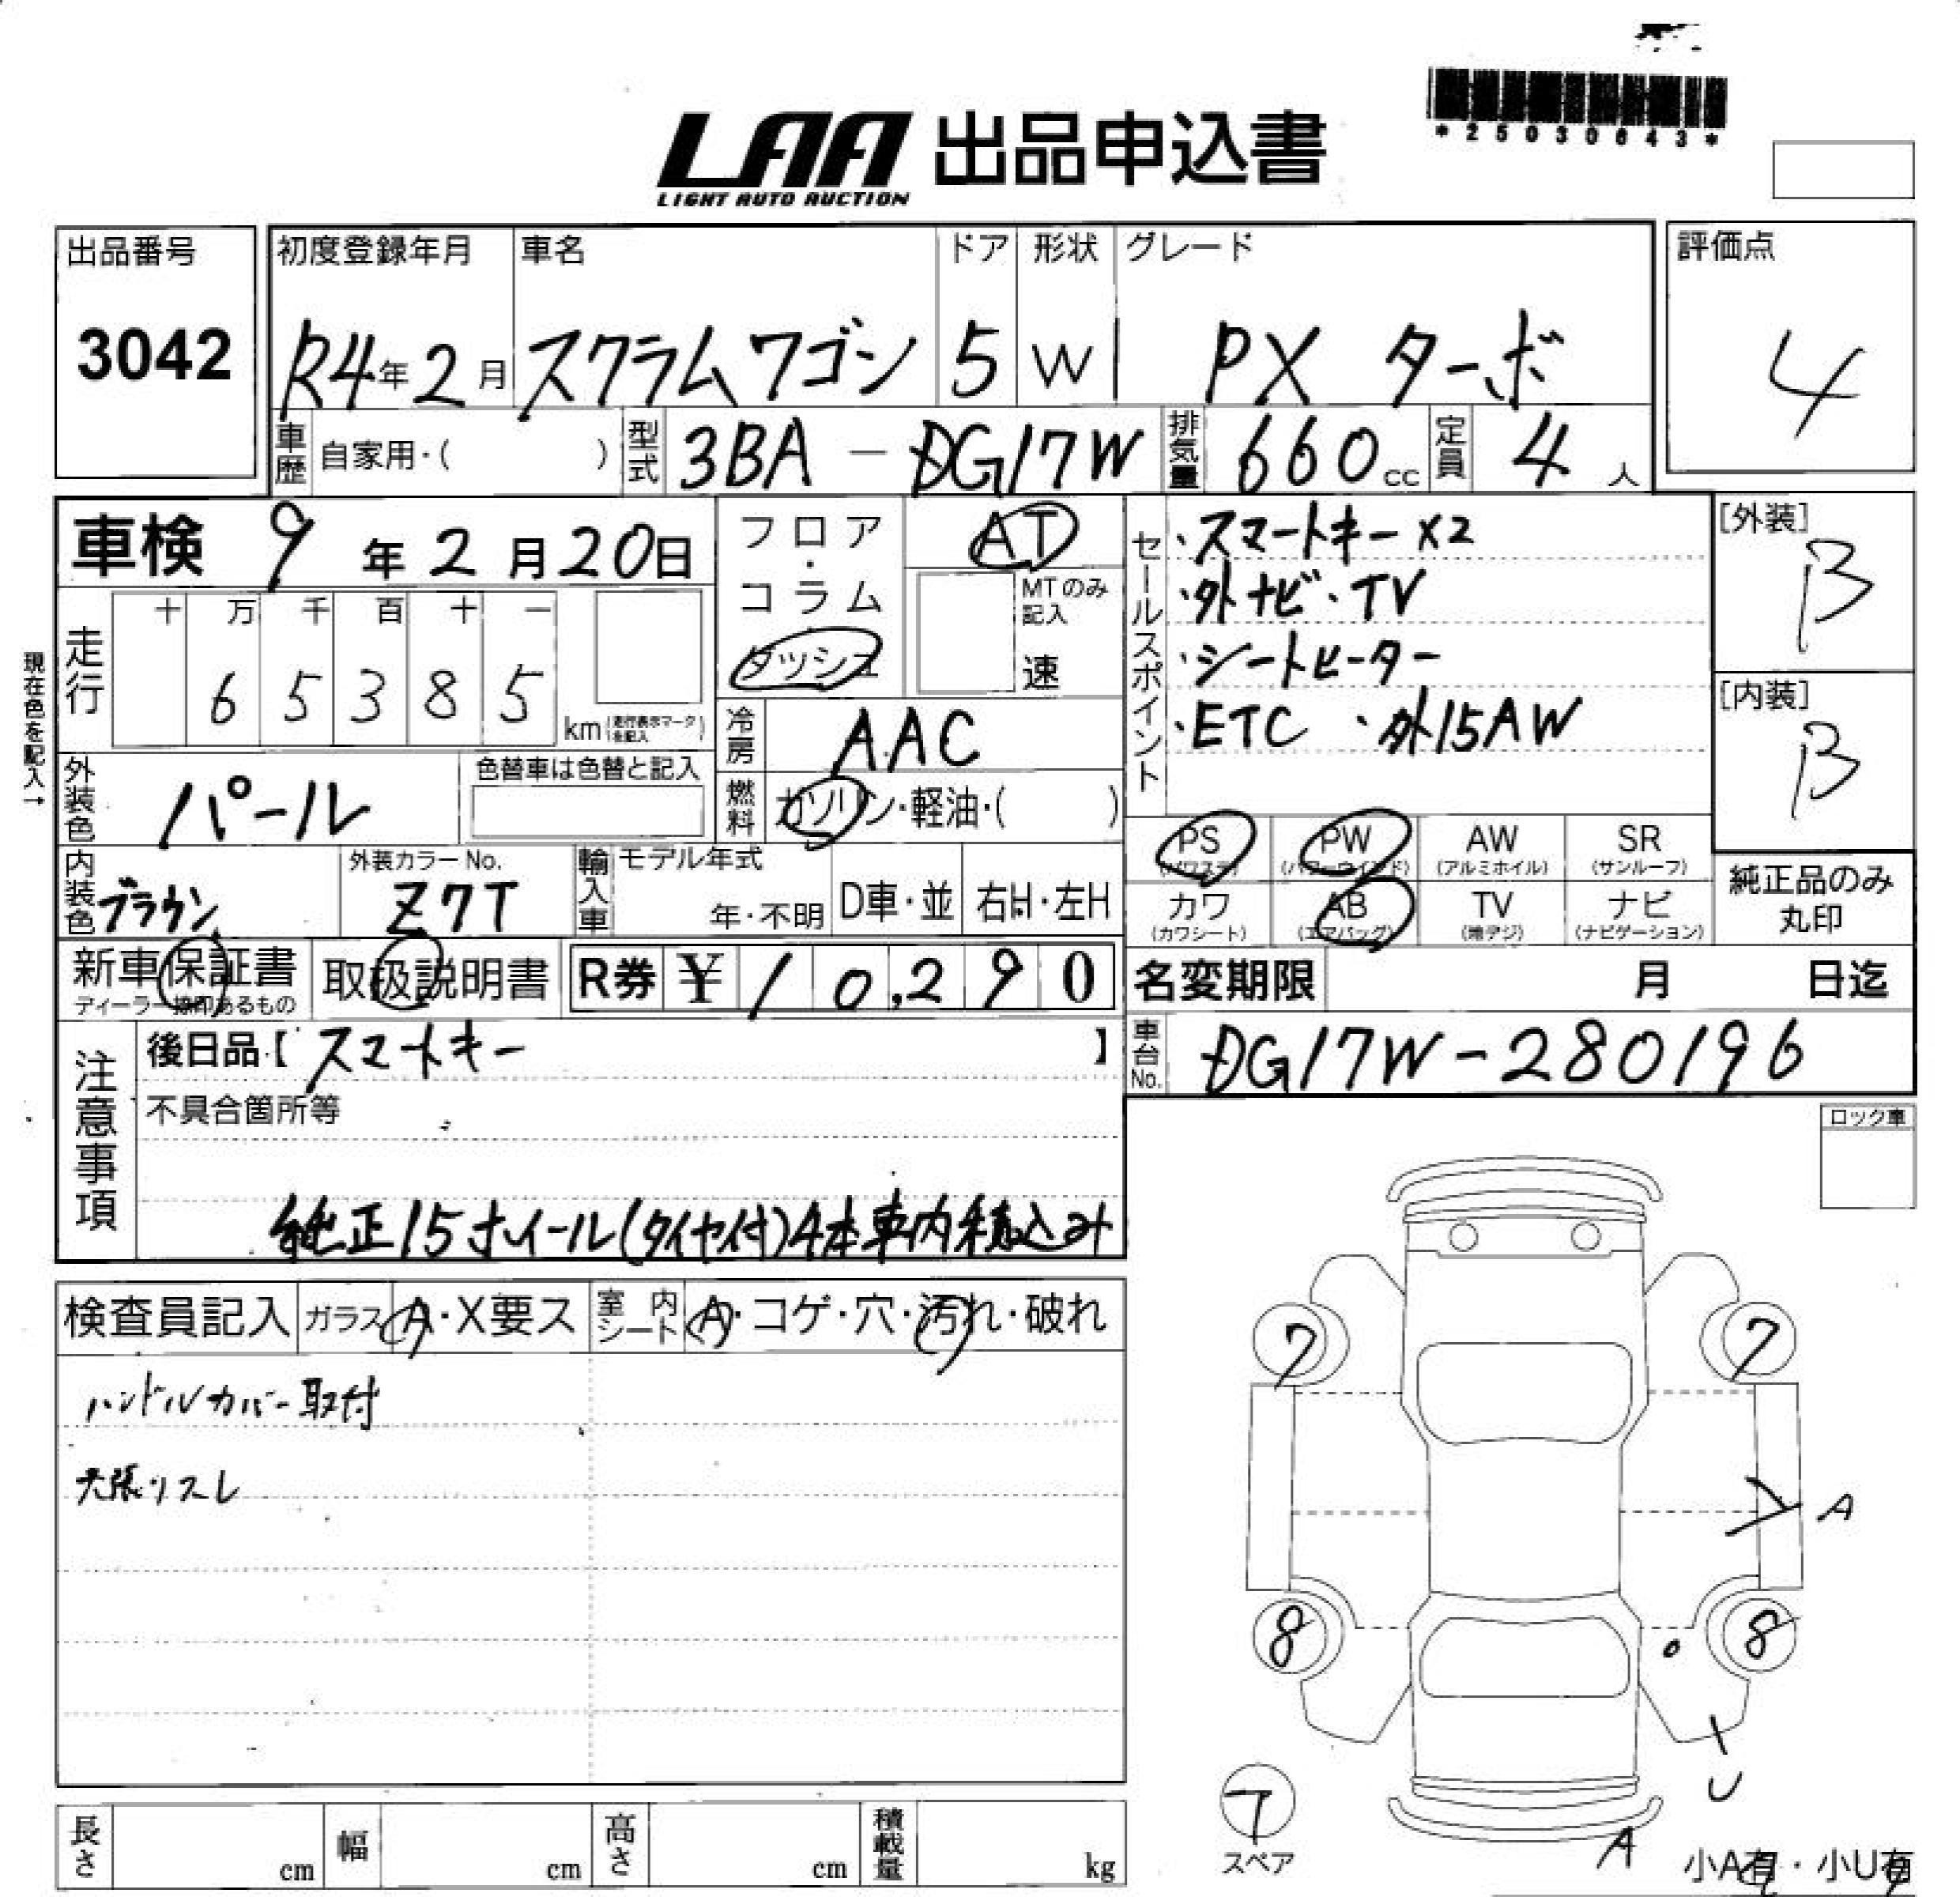 *25030643*
LAA 出品申込書
LIGHT AUTO AUCTION
出品番号 初度登録年月 車名 ドア 形状 グレード 評価点
3042 R4年2月 スクラムワゴン 5 W PX ターボ 4
車歴 自家用・( ) 型式 3BA - DG17W 排気量 660cc 定員 4人
車検 9年2月20日 フロア・コラム ダッシュ AT
MTのみ記入 速
セールスポイント
・スマートキー×2
・外ナビ・TV
・シートヒーター
・ETC ・外15AW
[外装]
B
[内装]
B
現在色を記入→
走行 十 万 千 百 十 一
6 5 3 8 5 km
冷房 AAC
外装色 パール 色替車は色替と記入
燃料 ガソリン・軽油・( )
PS (パワステ) PW (パワーウインド) AW (アルミホイル) SR (サンルーフ)
カワ (カワシート) AB (エアバッグ) TV (地デジ) ナビ (ナビゲーション)
純正品のみ
丸印
内装色 ブラウン 外装カラーNo. Z7T 輸入車 モデル年式 年・不明 D車・並 右H・左H
新車保証書 取扱説明書 R券 ¥10,290
名変期限 月 日迄
車台No. DG17W-280196
注意事項
後日品【 スマートキー 】
不具合箇所等
純正15ホイール(タイヤ付)4本車内積込み
ロック車
検査員記入 ガラス A・X要ス 室内シート A・コゲ・穴・汚れ・破れ
ハンドルカバー取付
天張りスレ
7 7
A
8 8
U
スペア
A
小A有・小U有
長さ cm 幅 cm 高さ cm 積載量 kg